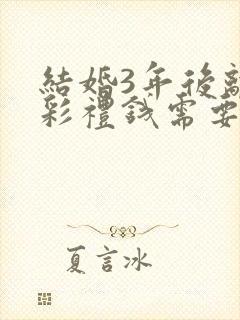 結婚3年後離
彩禮錢需要
夏言冰